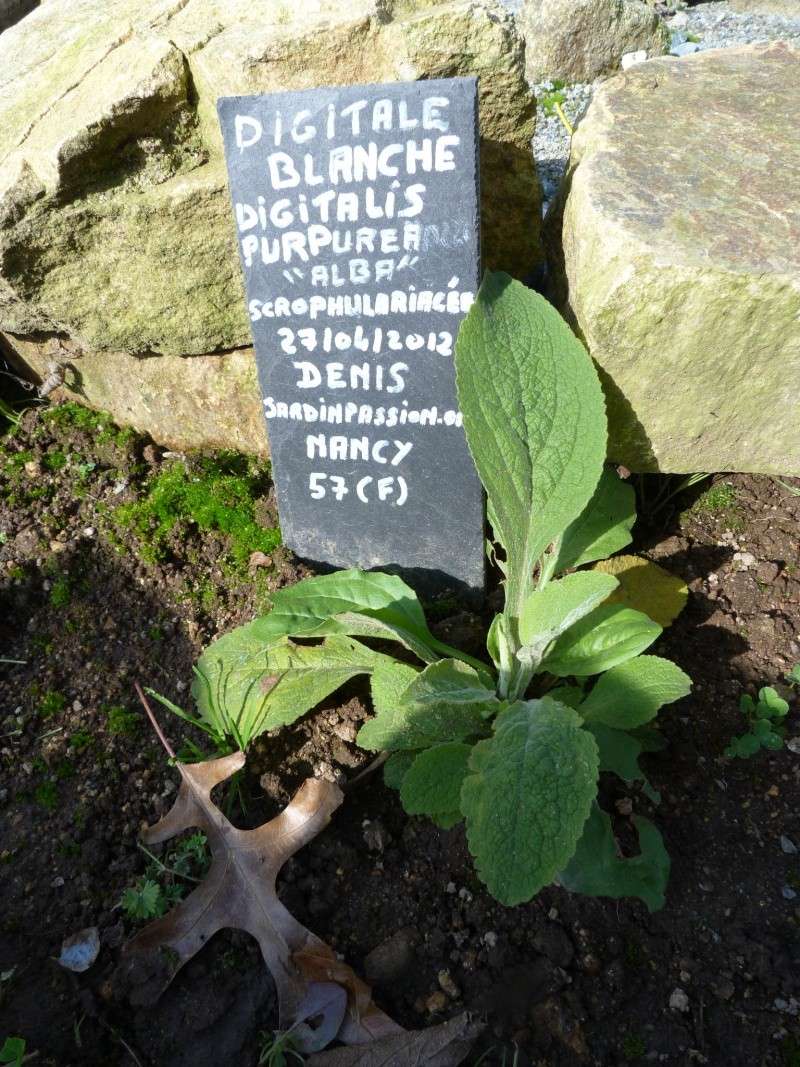 DIGITALE
BLANCHE
DIGITALIS
PURPUREA
"ALBA"
SCROPHULARIACÉE
27/04/2012
DENIS
JARDINPASSION.OR
NANCY
57(F)